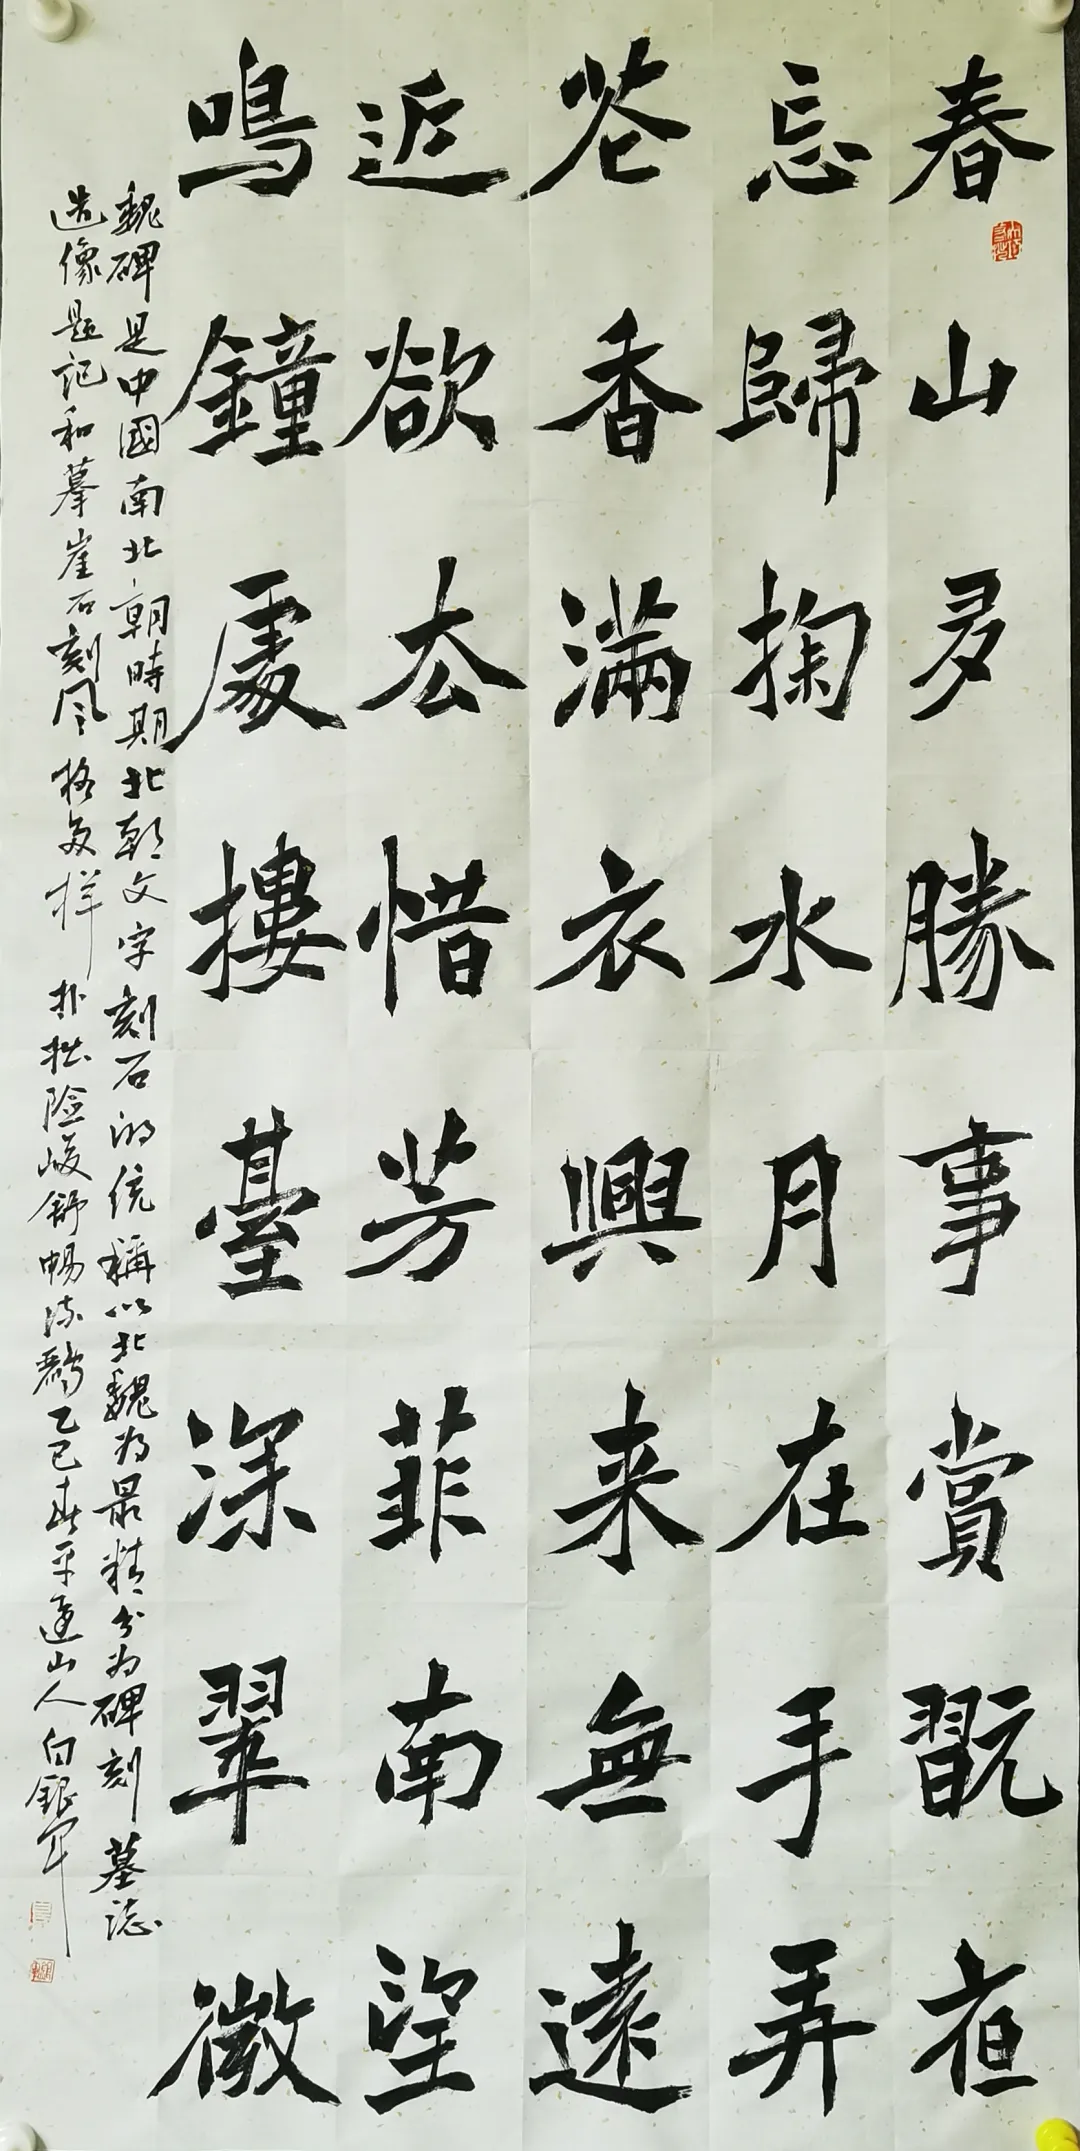 春山多勝事賞翫夜
忘歸掬水月在手弄
花香滿衣興来無遠
近欲去惜芳菲南望
鳴鐘處摟臺深翠微
魏碑是中國南北朝時期北朝文字刻石的统稱以北魏为最精分为碑刻墓誌
造像题记和摹崖石刻风格多样朴拙险峻舒畅流麗乙巳春平遥山人白银军